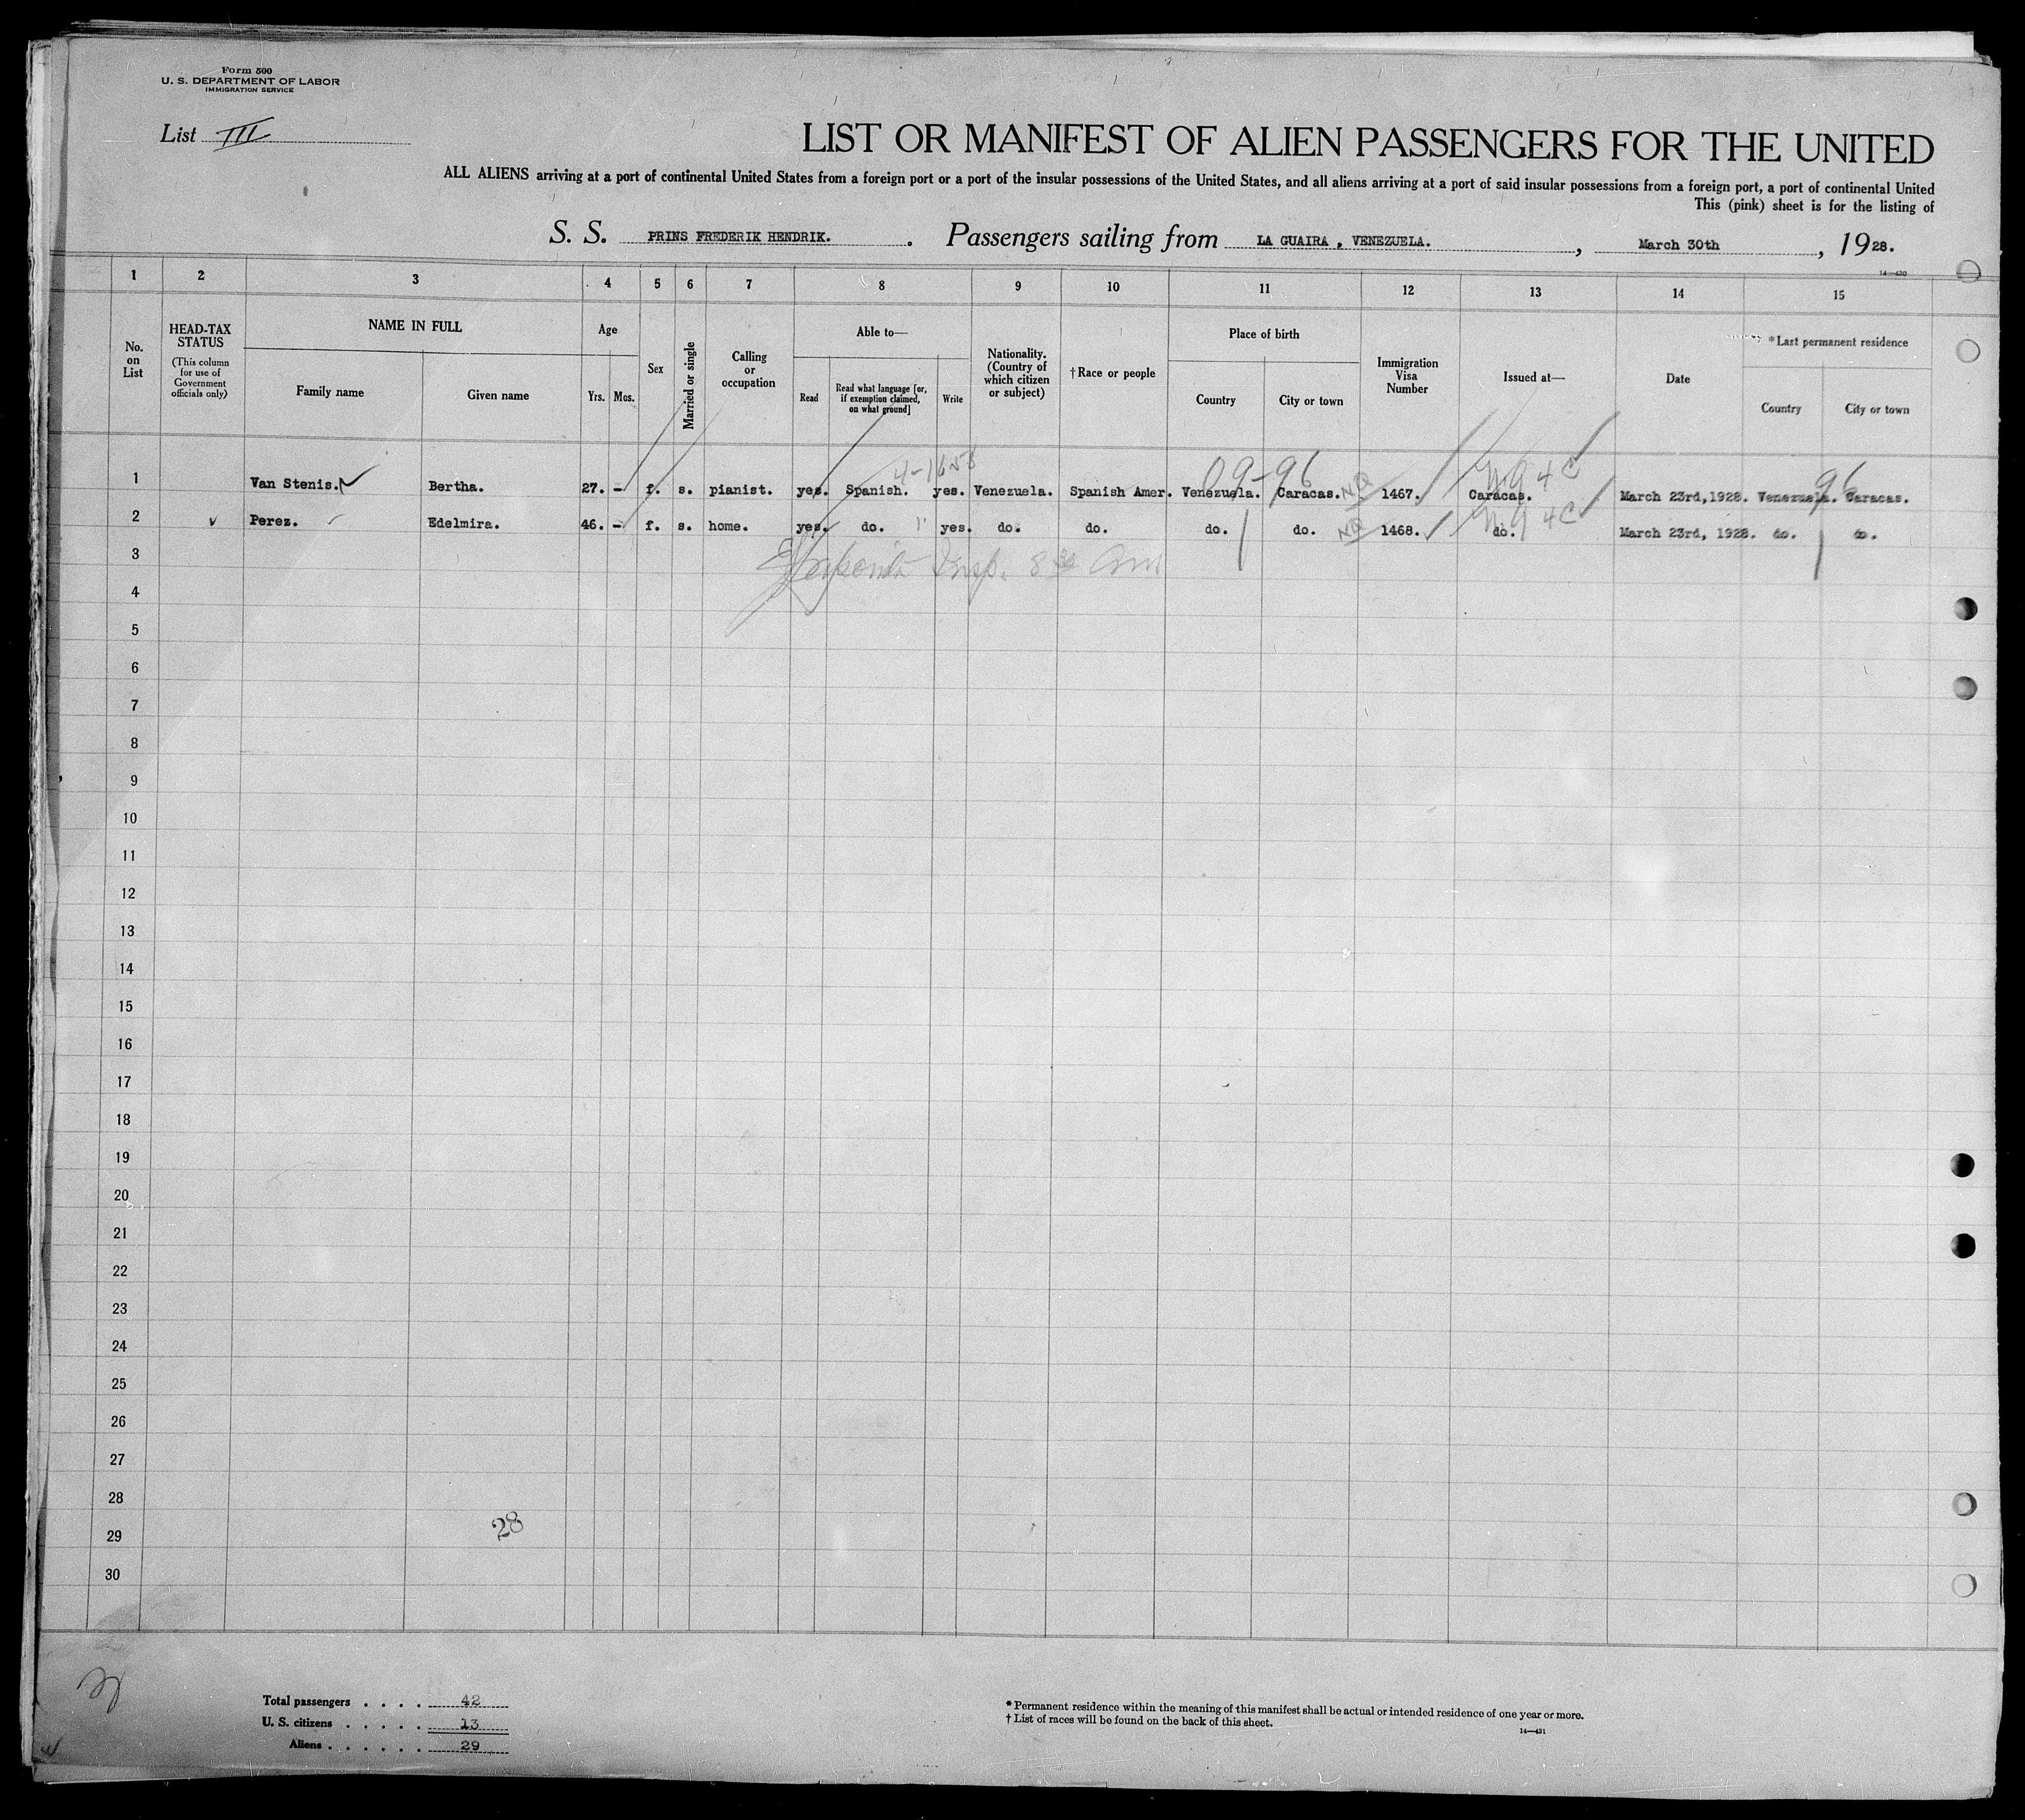 Form 500
U. S. DEPARTMENT OF LABOR
IMMIGRATION SERVICE
List III
LIST OR MANIFEST OF ALIEN PASSENGERS FOR THE UNITED
ALL ALIENS arriving at a port of continental United States from a foreign port or a port of the insular possessions of the United States, and all aliens arriving at a port of said insular possessions from a foreign port, a port of continental United
This (pink) sheet is for the listing of
S. S. PRINS FREDERIK HENDRIK. . Passengers sailing from LA GUAIRA , VENEZUELA. , March 30th , 1928.
14—430
1 2 3 4 5 6 7 8 9 10 11 12 13 14 15
No. on List
HEAD-TAX STATUS
(This column for use of Government officials only)
NAME IN FULL
Family name
Given name
Age
Yrs. Mos.
Sex
Married or single
Calling or occupation
Able to—
Read
Read what language [or, if exemption claimed, on what ground]
Write
Nationality. (Country of which citizen or subject)
†Race or people
Place of birth
Country
City or town
Immigration Visa Number
Issued at—
Date
*Last permanent residence
Country
City or town
4-1658
09-96
NQ
4C
96
1 Van Stenis. Bertha. 27. – f. s. pianist. yes. Spanish. yes. Venezuela. Spanish Amer. Venezuela. Caracas. 1467. Caracas. March 23rd,1928. Venezuela. Caracas.
NQ
4C
2 Perez. Edelmira. 46. – f. s. home. yes. do. yes. do. do. do. do. 1468. do. March 23rd, 1928. do. do.
3
Insp.
4
5
6
7
8
9
10
11
12
13
14
15
16
17
18
19
20
21
22
23
24
25
26
27
28
28
29
30
Total passengers . . . . 42
U. S. citizens . . . . . 13
Aliens . . . . . . 29
* Permanent residence within the meaning of this manifest shall be actual or intended residence of one year or more.
† List of races will be found on the back of this sheet.
14—431